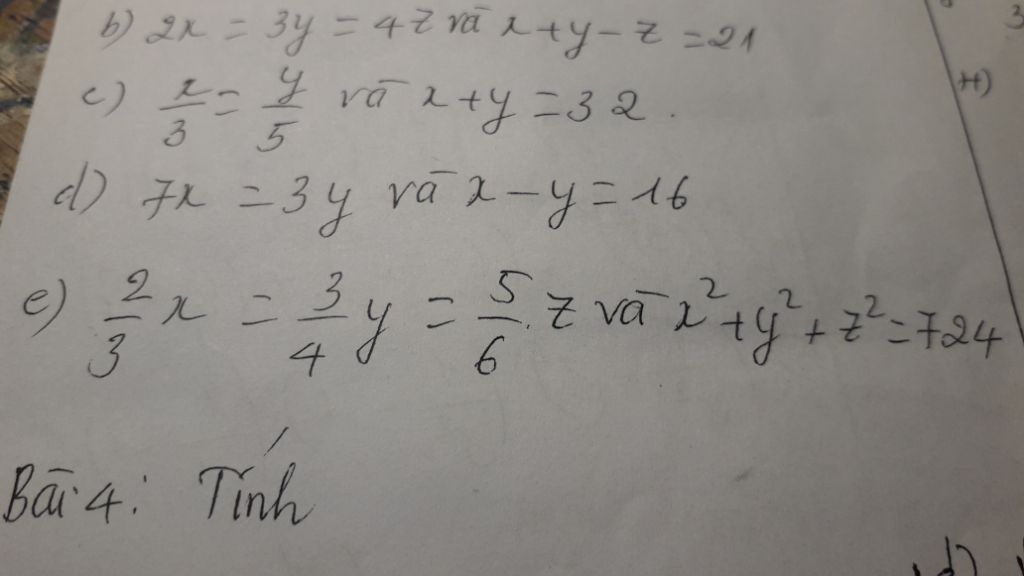 b) 2x = 3y = 4z và x + y - z = 21
c) x/3 = y/5 và x + y = 32.
d) 7x = 3y và x - y = 16
e) 2/3 x = 3/4 y = 5/6 . z và x² + y² + z² = 724
Bài 4: Tính
H)
3
d)